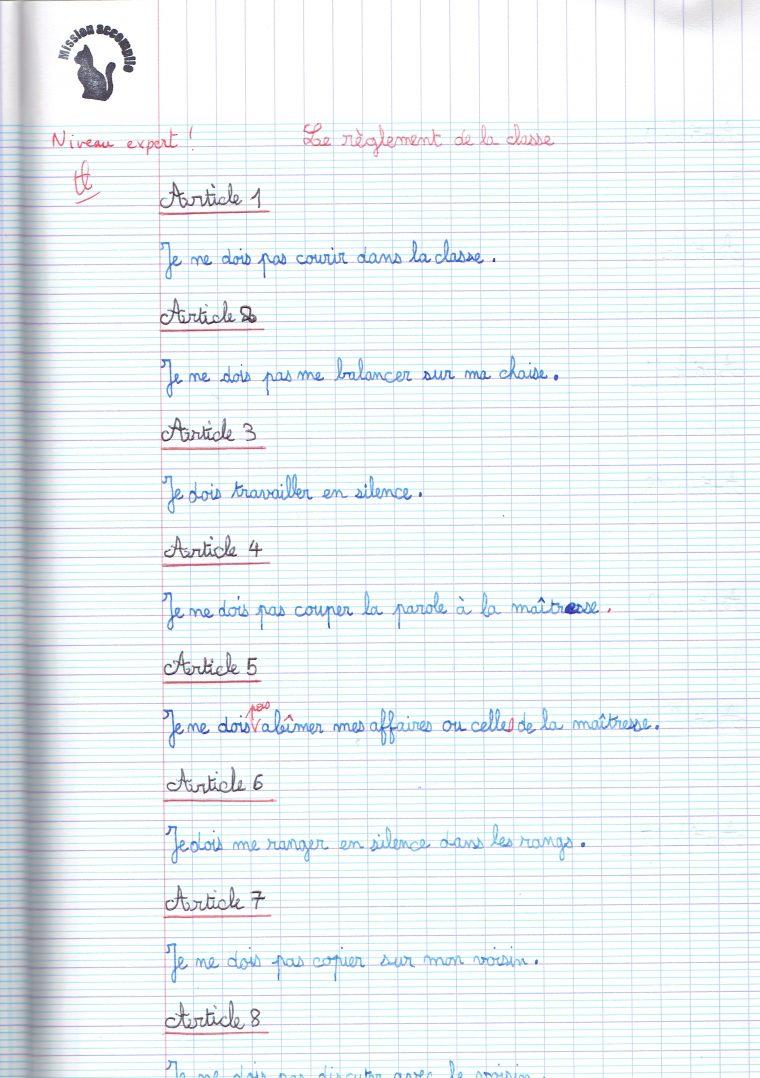 Mission accomplie
Niveau expert !
Le règlement de la classe
Article 1
Je ne dois pas courir dans la classe.
Article 2
Je ne dois pas me balancer sur ma chaise.
Article 3
Je dois travailler en silence.
Article 4
Je ne dois pas couper la parole à la maîtresse.
Article 5
pas
Je ne dois abîmer mes affaires ou celles de la maîtresse.
Article 6
Je dois me ranger en silence dans les rangs.
Article 7
Je ne dois pas copier sur mon voisin.
Article 8
Je ne dois pas discuter avec le voisin.